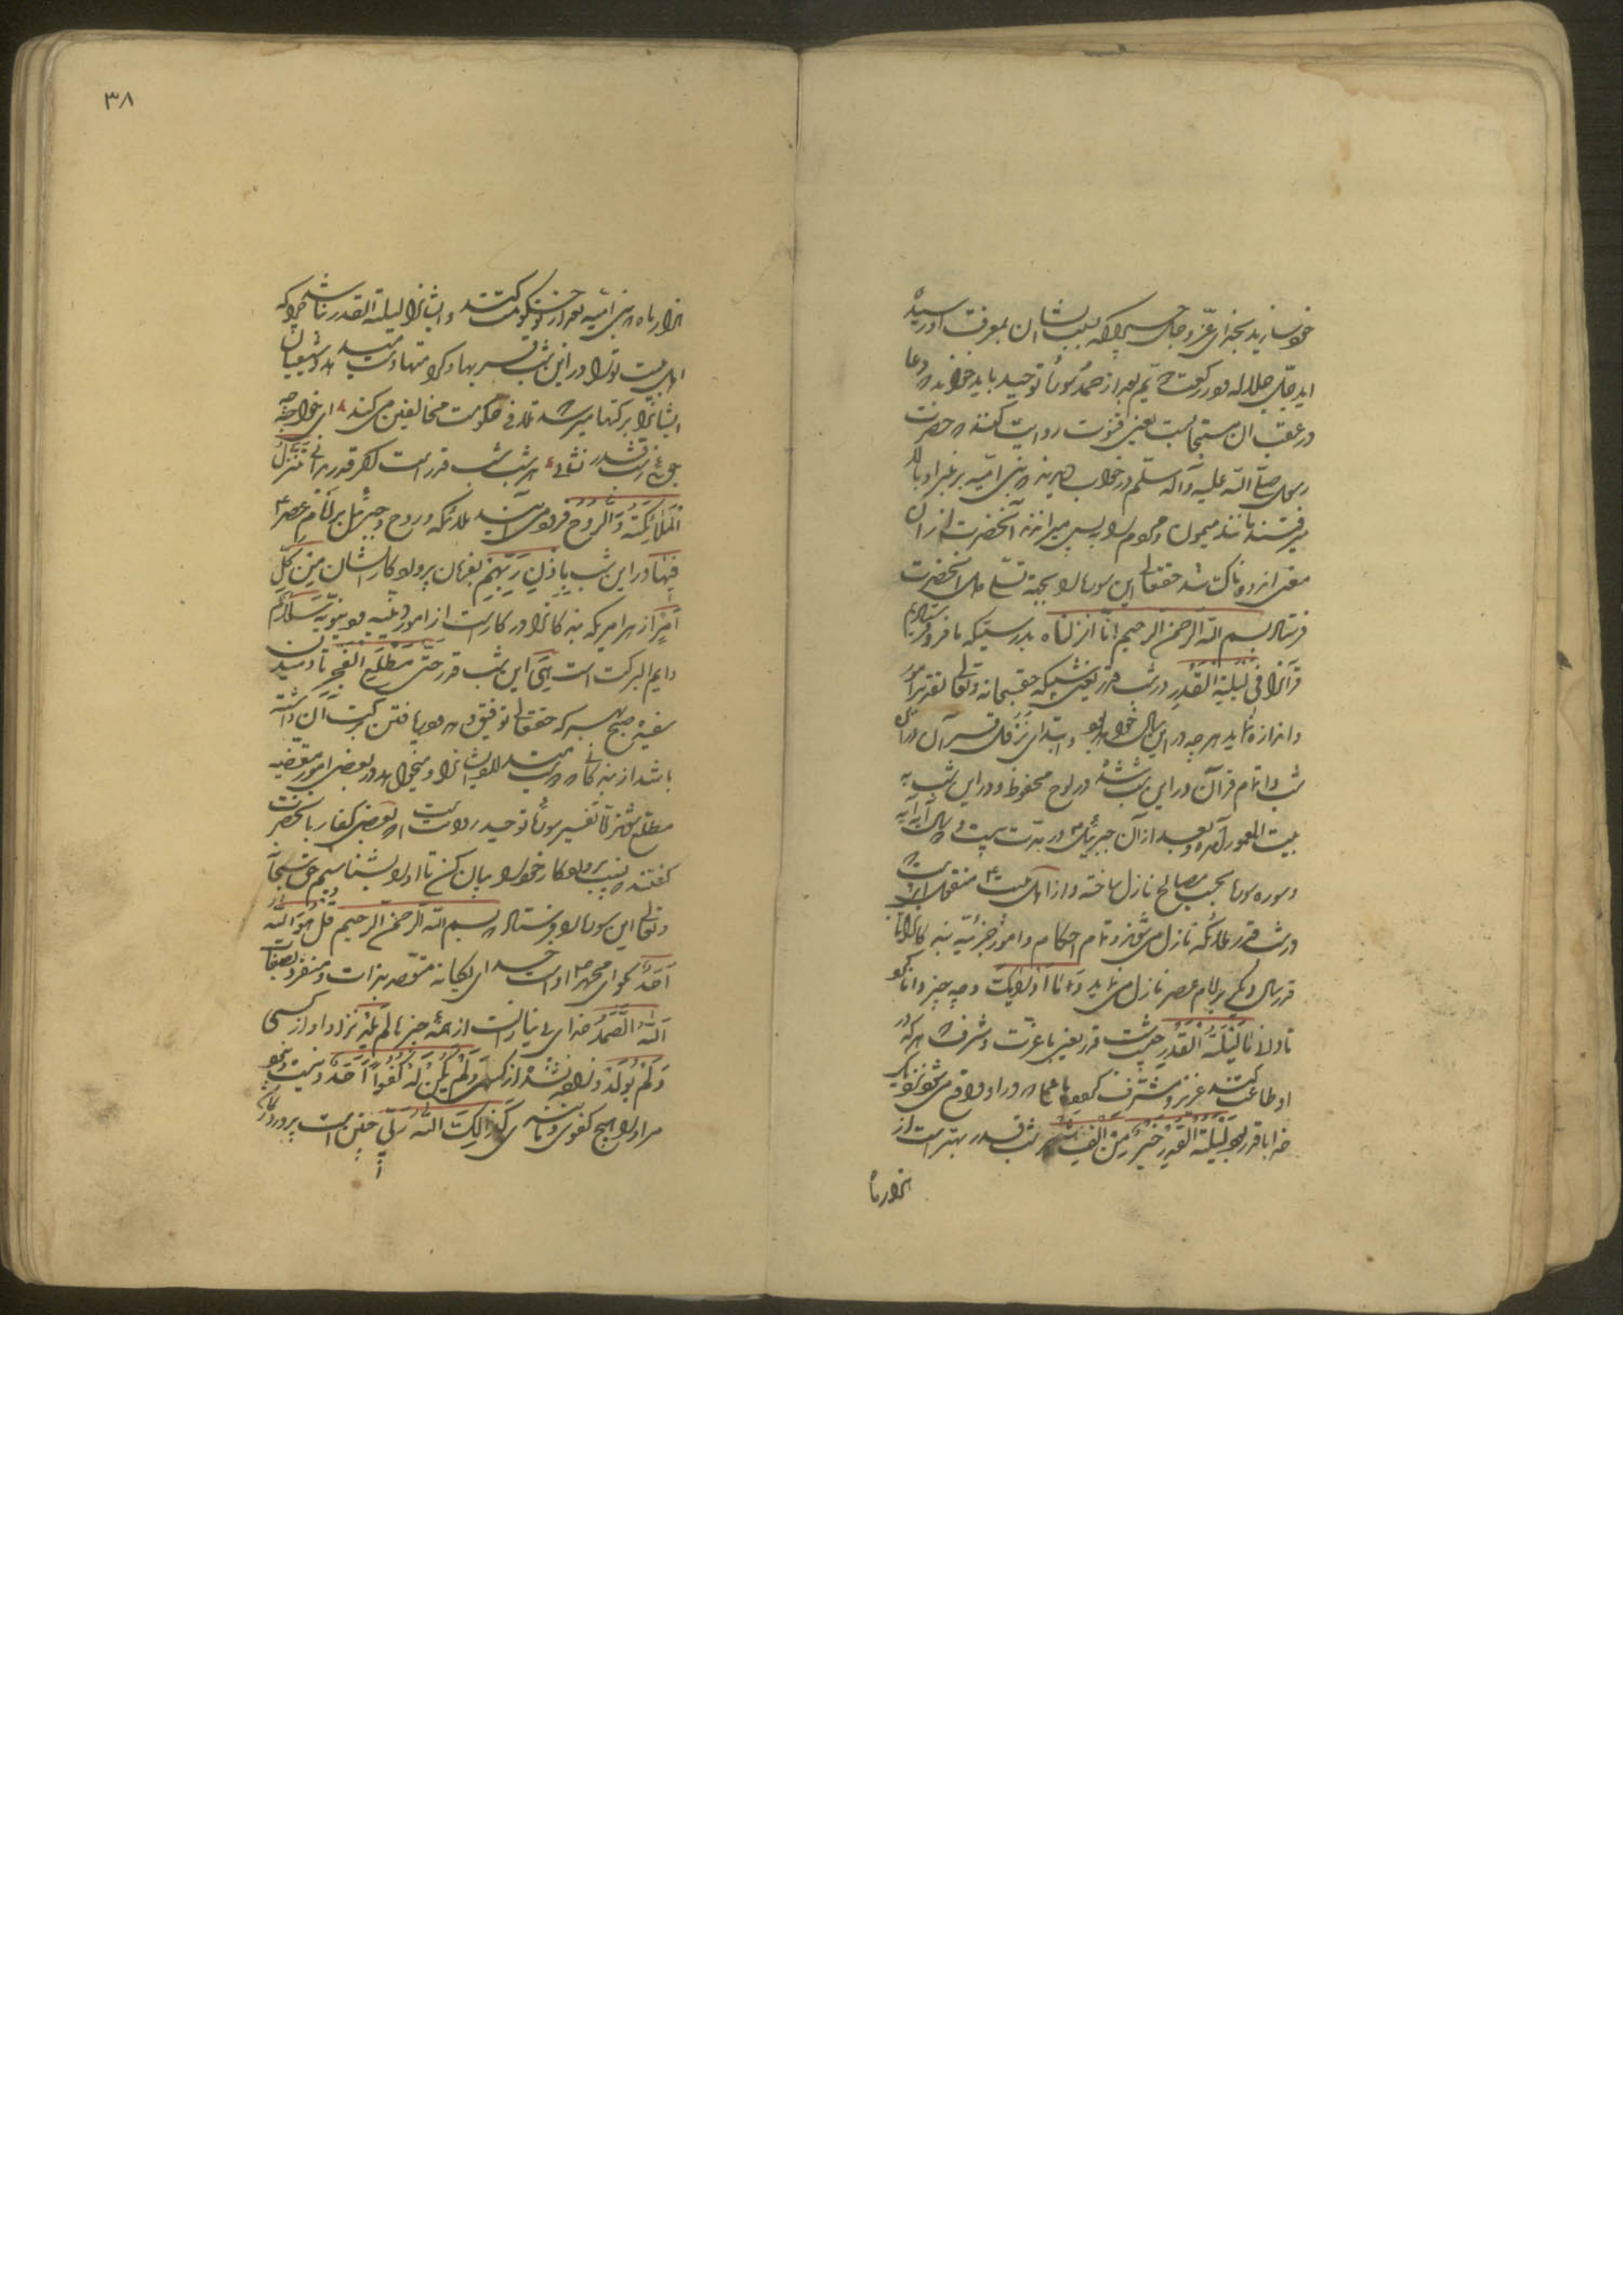 خود سازید بخدای عزّ و جلّ بسبب ایشان بمعرفت او رسیده
اید جلّ جلاله در رکعت دویم بعد از حمد سوره توحید باید خواند و دعا
در عقب آن مستحب است یعنی قنوت روایت کنند که حضرت
رسول صلّی الله علیه و آله و سلّم در خواب دیدند که بنی امیّه بر منبر او بالا
میرفتند مانند میمون و مردم را به پس میرانند آنحضرت از آن
معنی اندوهناک شد حقتعالی این سوره را بجهة تسلّی آنحضرت
فرستاد بسم الله الرحمن الرحیم انّا انزلناه بدرستیکه ما فرو فرستادیم
قرآنرا فی لیلة القدر در شب قدر یعنی شبیکه حق سبحانه و تعالی تقدیر امور
و اندازه نماید هر چه در این سال خواهد بود و ابتدای نزول قرآن در آن
شب و اتمام قرآن در این شب شد در لوح محفوظ و در این شب به
بیت المعمور آمده و بعد از آن جبرئیل در مدت بیست و سال آیه آیه
و سوره سوره بحسب مصالح نازل ساخته و از اهل بیت ع منقولست که
در شب قدر ملائکه نازل می شوند و تمام احکام و امور جزئیه بندگانرا تا
قدر سال دیگر بر امام عصر نازل می نماید و ما ادریک و چه چیز دانا کرد
تو را ما لیلة القدر چیست شب قدر یعنی با عزّت و شرف که هر که در
او طاعت کند عزیز و مشرّف گردد یا اعمال که در او واقع می شود نزدیک
خدا با قدر بود لیلة القدر خیر من الف شهر شب قدر بهتر است از
هزار ماه
۳۸
هزار ماه که بنی امیّه بعد از تو حکومت کنند و ایشانرا لیلة القدر نباشد چرا که
اهل بیت تو را در این شب و کرامتها و شیعیان
ایشانرا برکتها میرسد در حکومت مخالفین می کنند ای خواجه چه
جوئی ز شب قدر نشانی هر شب شب قدر است اگر قدر بدانی تنزّل
الملائکة و الروح فرود می آیند ملائکه و روح و جبرئیل بر امام عصر ع
فیها در این شب باذن ربّهم بفرمان پروردگارشان من کلّ
امر از هر امریکه بندگانرا در کار است از امور دینیه و دنیویه سلام
دایم البرکت است هی این شب قدر حتّی مطلع الفجر تا دمیدن
سفیده صبح که حقتعالی توفیق دهد و یافتن برکت آن داشته
باشد از بندگانی که ایشانرا و میخواهد در بعضی امور مقضیه
مطلع شوند تفسیر سوره توحید روایت است که بعضی کفار با آنحضرت
گفتند نسب پروردگار خود را بیان کن تا او را بشناسیم حق سبحانه
و تعالی این سوره را فرستاد بسم الله الرحمن الرحیم قل هو الله
احد بگو ای محمد ص او است خدای یگانه بذات و منفرد بصفات
الله الصّمد خدای بی نیاز است از همه چیز لم یلد نزاد او از کسی
و لم یولد و زاده نشده از کسی و لم یکن له کفواً احد و نیست و نبود
مر او را هیچ کفوی و کذلک الله ربّی چنین است پروردگار